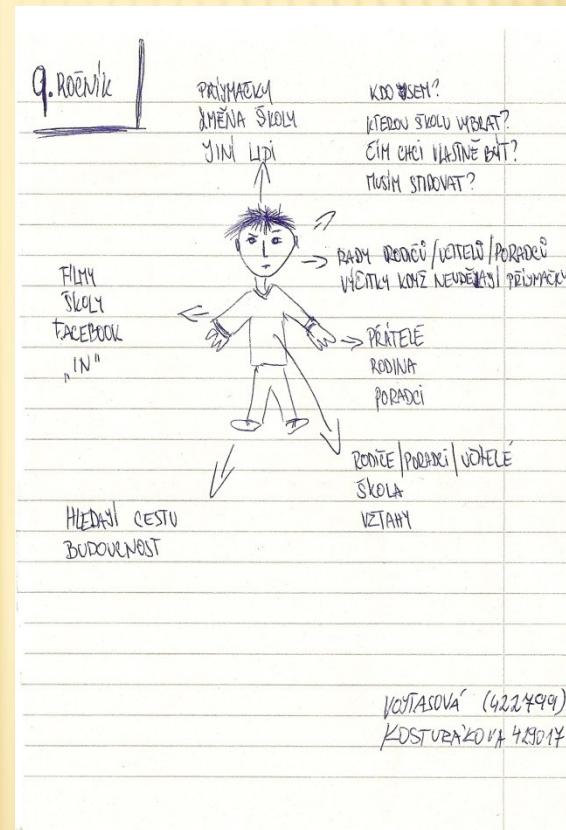 9. ROČNÍK
PŘIJÍMAČKY
ZMĚNA ŠKOLY
JINÍ LIDÉ
KDO JSEM?
KTEROU ŠKOLU VYBRAT?
ČÍM CHCI VLASTNĚ BÝT?
MUSÍM STUDOVAT?
RADY RODIČŮ/UČITELŮ/PORADCŮ
VÝČITKY KDYŽ NEUDĚLAJÍ PŘIJÍMAČKY
FILMY
ŠKOLY
FACEBOOK
„IN"
PŘÁTELÉ
RODINA
PORADCI
RODIČE/PORADCI/UČITELÉ
ŠKOLA
VZTAHY
HLEDAJÍ CESTU
BUDOUCNOST
VOJTASOVÁ (422799)
KOSTURÁKOVÁ 429017